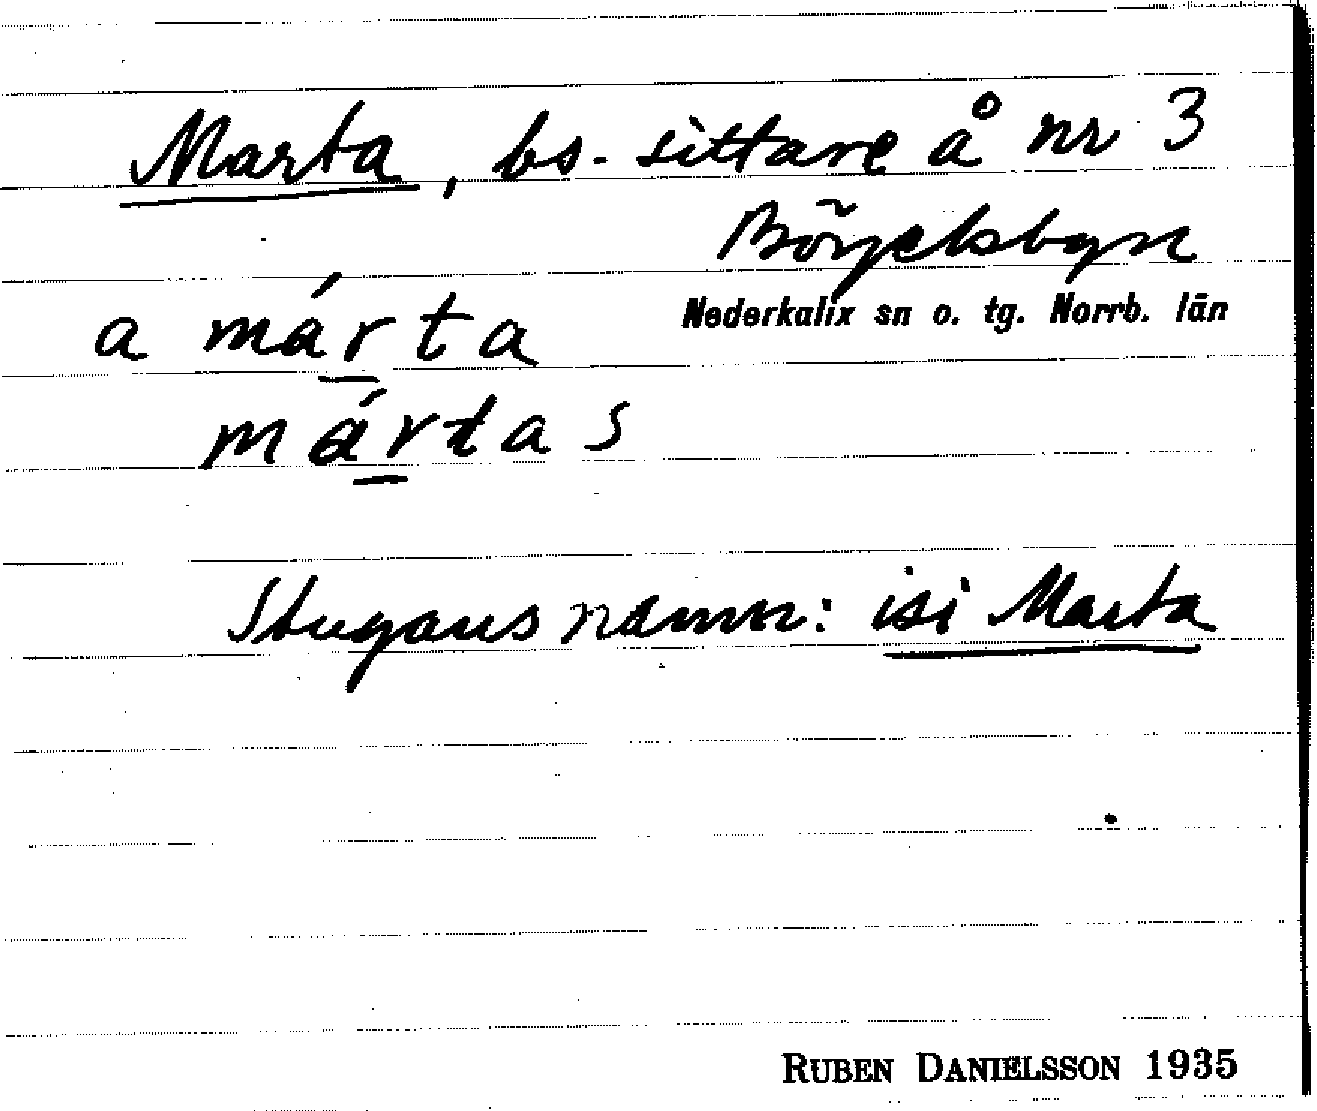 Marta, bs.-sittare å nr 3
Börjelsbyn
Nederkalix sn o. tg. Norrb. län
a márta
mártas
Stugans namn: isi Marta
RUBEN DANIELSSON 1935